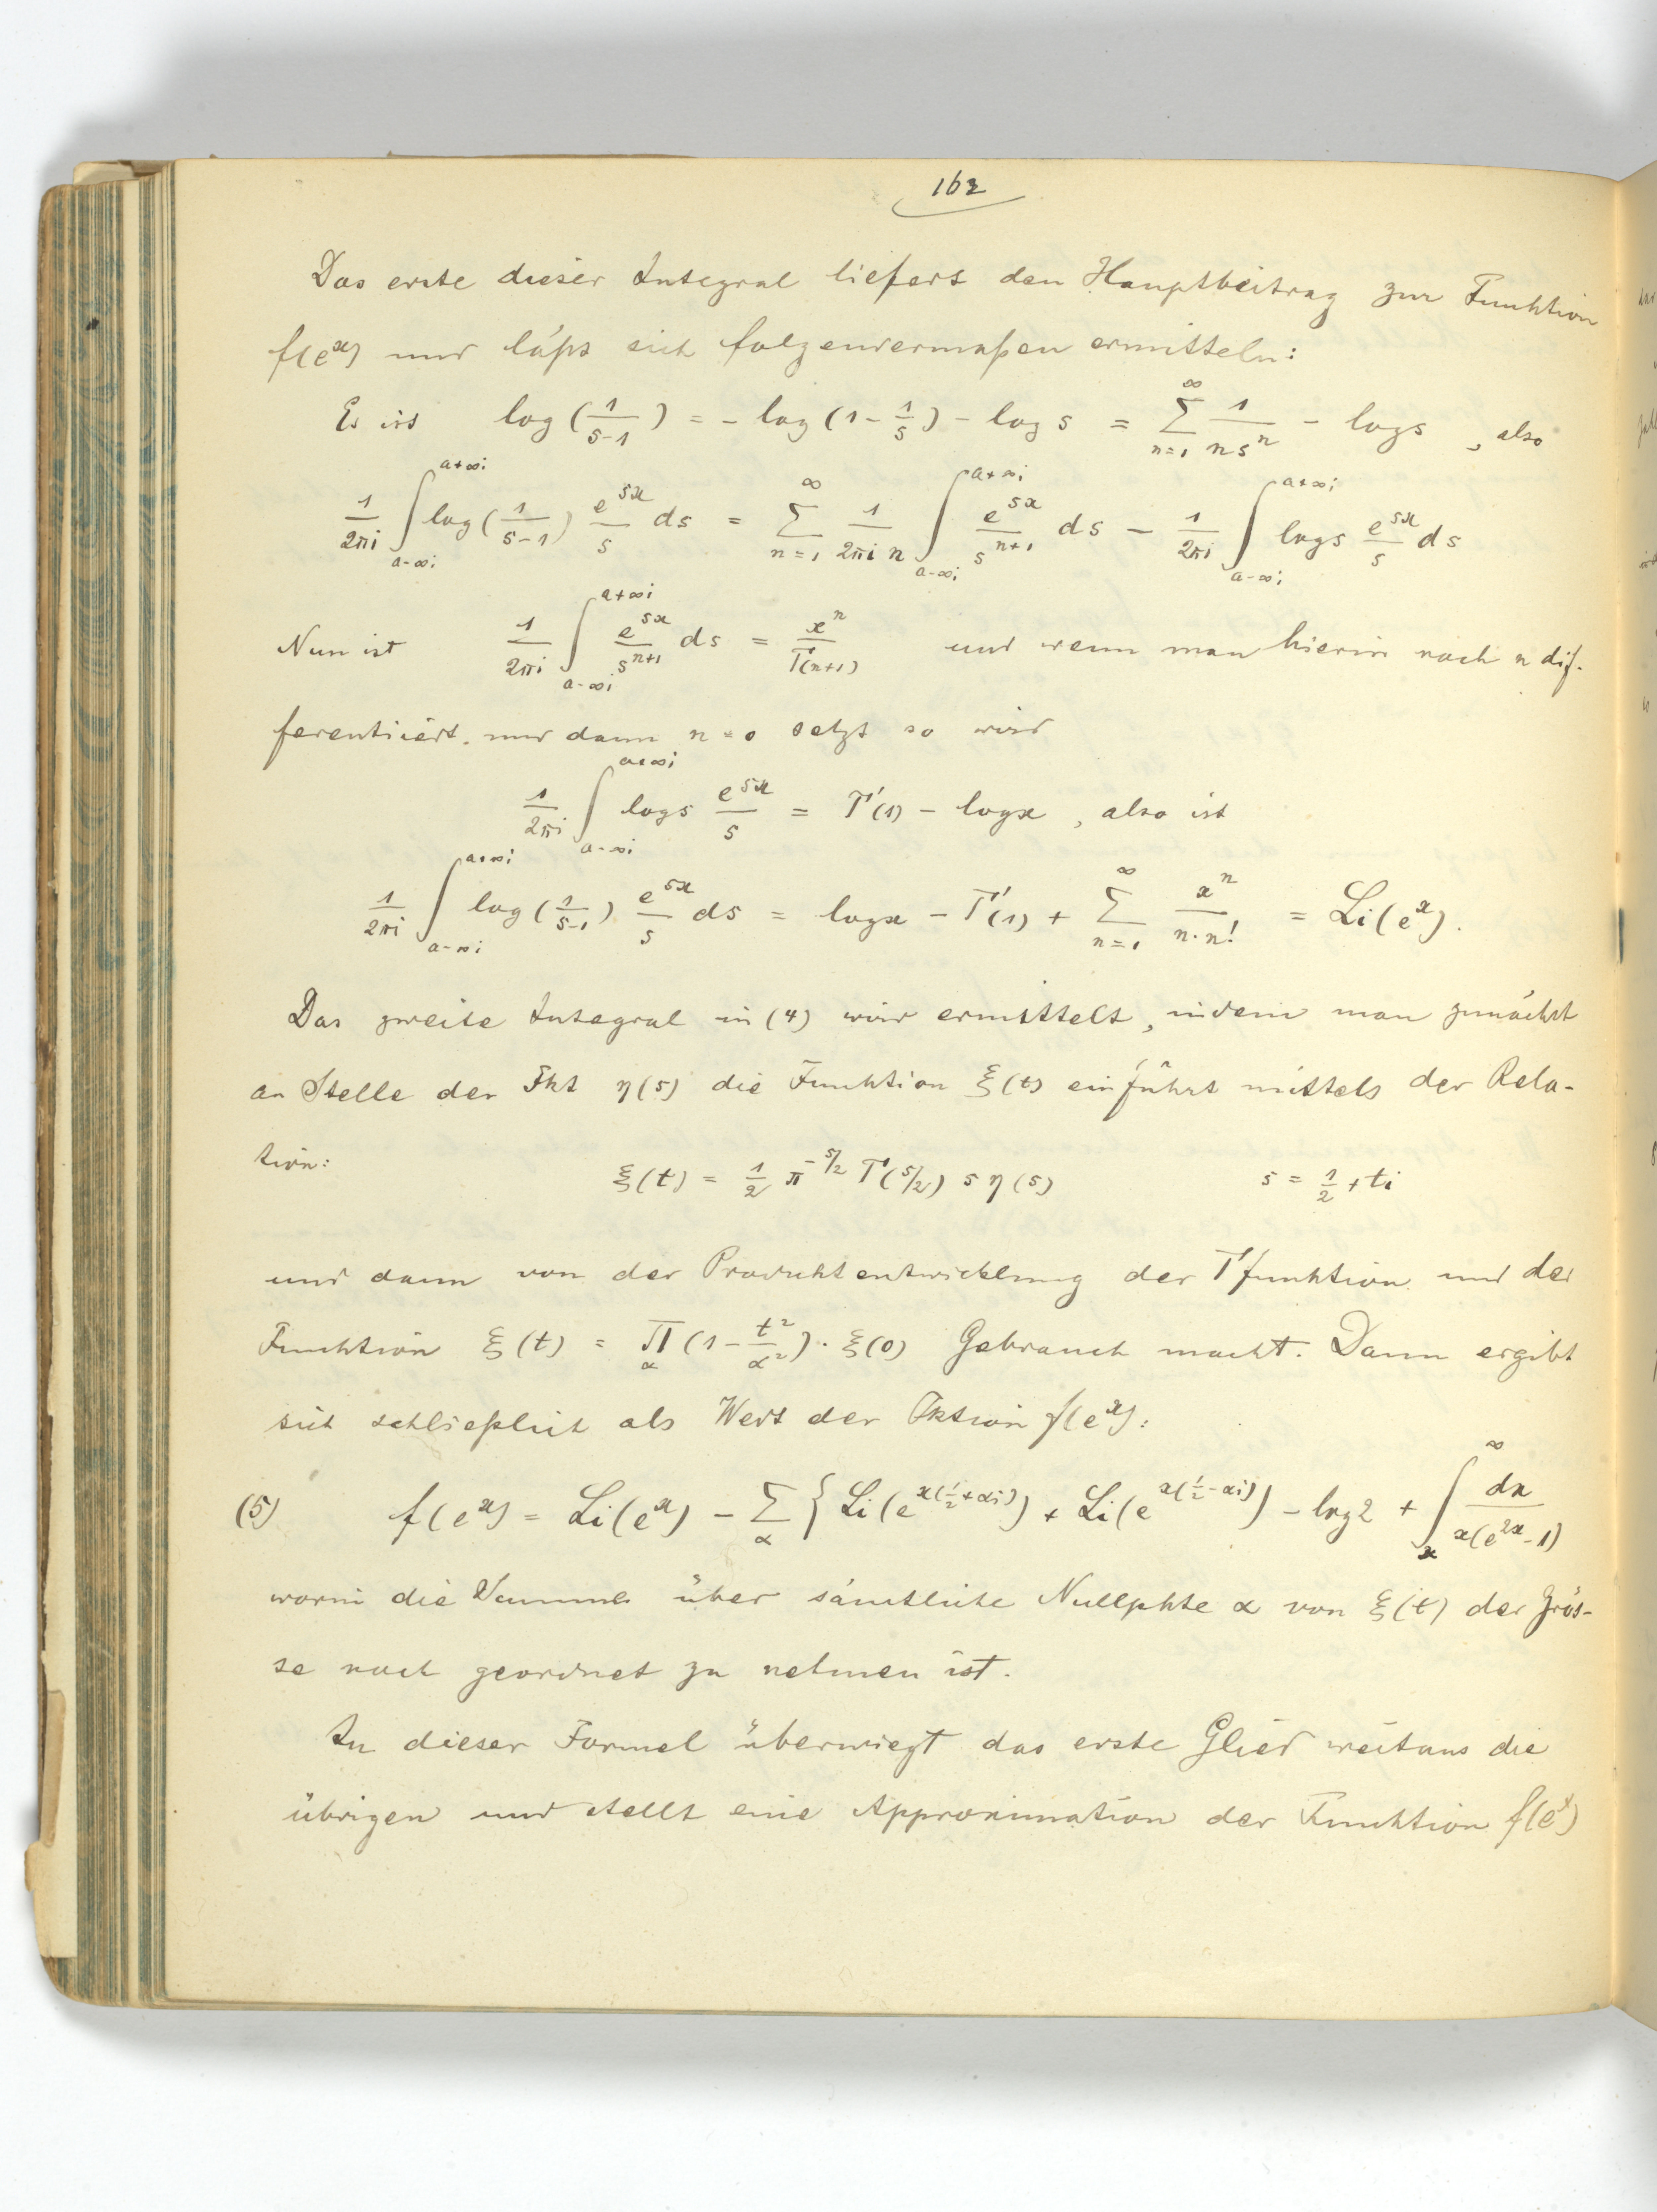 162
Das erste dieser Integral liefert den Hauptbeitrag zur Funktion
f(e^x) und läßt sich folgendermaßen ermitteln:
Es ist log(1/(s-1)) = - log(1 - 1/s) - log s = ∑_{n=1}^{∞} 1/(n s^n) - log s , also
1/(2πi) ∫_{a-∞i}^{a+∞i} log(1/(s-1)) e^{sx}/s ds = ∑_{n=1}^{∞} 1/(2πi n) ∫_{a-∞i}^{a+∞i} e^{sx}/s^{n+1} ds - 1/(2πi) ∫_{a-∞i}^{a+∞i} log s e^{sx}/s ds
Nun ist 1/(2πi) ∫_{a-∞i}^{a+∞i} e^{sx}/s^{n+1} ds = x^n/Γ(n+1) und wenn man hierin nach n dif-
ferentiiert und dann n=0 setzt so wird
1/(2πi) ∫_{a-∞i}^{a+∞i} log s e^{sx}/s = Γ'(1) - log x , also ist
1/(2πi) ∫_{a-∞i}^{a+∞i} log(1/(s-1)) e^{sx}/s ds = log x - Γ'(1) + ∑_{n=1}^{∞} x^n/(n·n!) = Li(e^x).
Das zweite Integral in (4) wird ermittelt, indem man zunächst
an Stelle der Fkt η(s) die Funktion ξ(t) einführt mittels der Rela-
tion: ξ(t) = 1/2 π^{-s/2} Γ(s/2) s η(s) s = 1/2 + ti
und dann von der Produktentwicklung der Γfunktion und der
Funktion ξ(t) = ∏_α (1 - t²/α²) · ξ(0) Gebrauch macht. Dann ergibt
sich schließlich als Wert der Fktion f(e^x):
(5) f(e^x) = Li(e^x) - ∑_α { Li(e^{x(1/2+αi)}) + Li(e^{x(1/2-αi)}) - log 2 + ∫_x^∞ dx/(x(e^{2x}-1))
worin die Summe über sämtliche Nullpkte α von ξ(t) der Grös-
se nach geordnet zu nehmen ist.
In dieser Formel überwiegt das erste Glied weitaus die
übrigen und stellt eine Approximation der Funktion f(e^x)